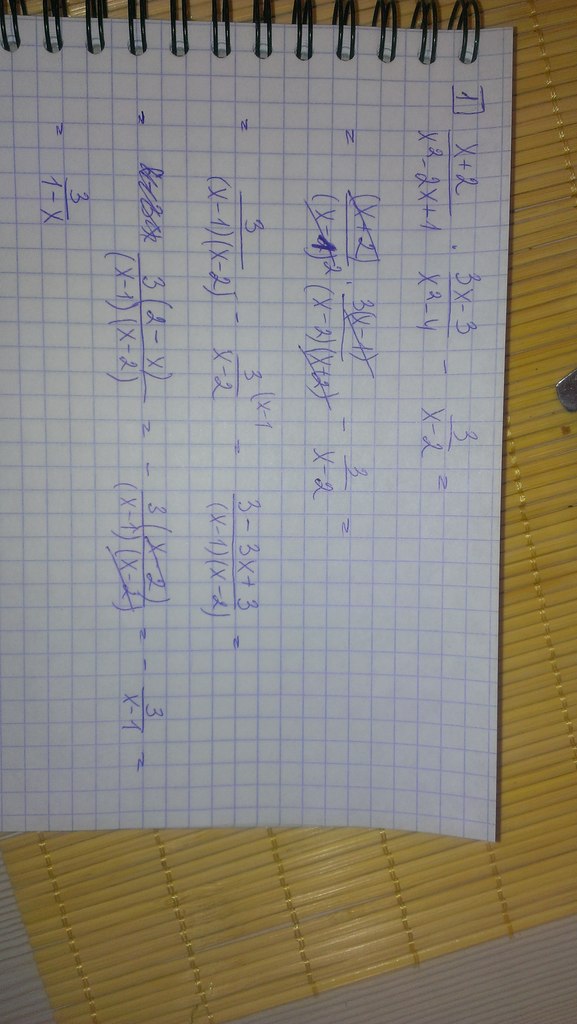 1 (x+2)/(x²-2x+1) · (3x-3)/(x²-4) - 3/(x-2) =
= (x+2)/(x-1)² · 3(x-1)/((x-2)(x+2)) - 3/(x-2) =
= 3/((x-1)(x-2)) - 3/(x-2) (x-1 = (3-3x+3)/((x-1)(x-2)) =
= 3(2-x)/((x-1)(x-2)) = - 3(x-2)/((x-1)(x-2)) = - 3/(x-1) =
= 3/(1-x)